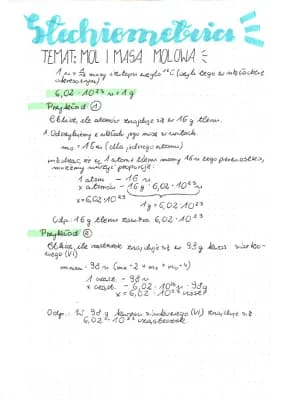 Stechiometria
TEMAT: MOL I MASA MOLOWA
1 u = 1/12 masy izotopu węgla ¹²C (czyli tego w układzie okresowym)
6,02 · 10²³ u = 1 g
Przykład ①
Oblicz, ile atomów znajduje się w 16 g tlenu.
1. Odczytujemy z układu jego masę w unitach.
mo = 16 u (dla jednego atomu)
że 1 atom tlenu mamy 16 u tego pierwiastka,
możemy ułożyć proporcję:
1 atom — 16 u
x atomów — 16 g · 6,02 · 10²³ u
x = 6,02 · 10²³
1 g = 6,02 · 10²³
Odp.: 16 g tlenu zawiera 6,02 · 10²³
Przykład ②
Oblicz, ile cząsteczek znajduje się w 98 g kwasu siarko-
wego (VI)
98 u (mH · 2 + ms + mo · 4)
1 cząst. — 98 u
x cząst. — 6,02 · 10²³ u · 98
x = 6,02 · 10²³ cząst
Odp.: W 98 g kwasu siarkowego (VI) znajduje się
6,02 · 10²³ cząsteczek.